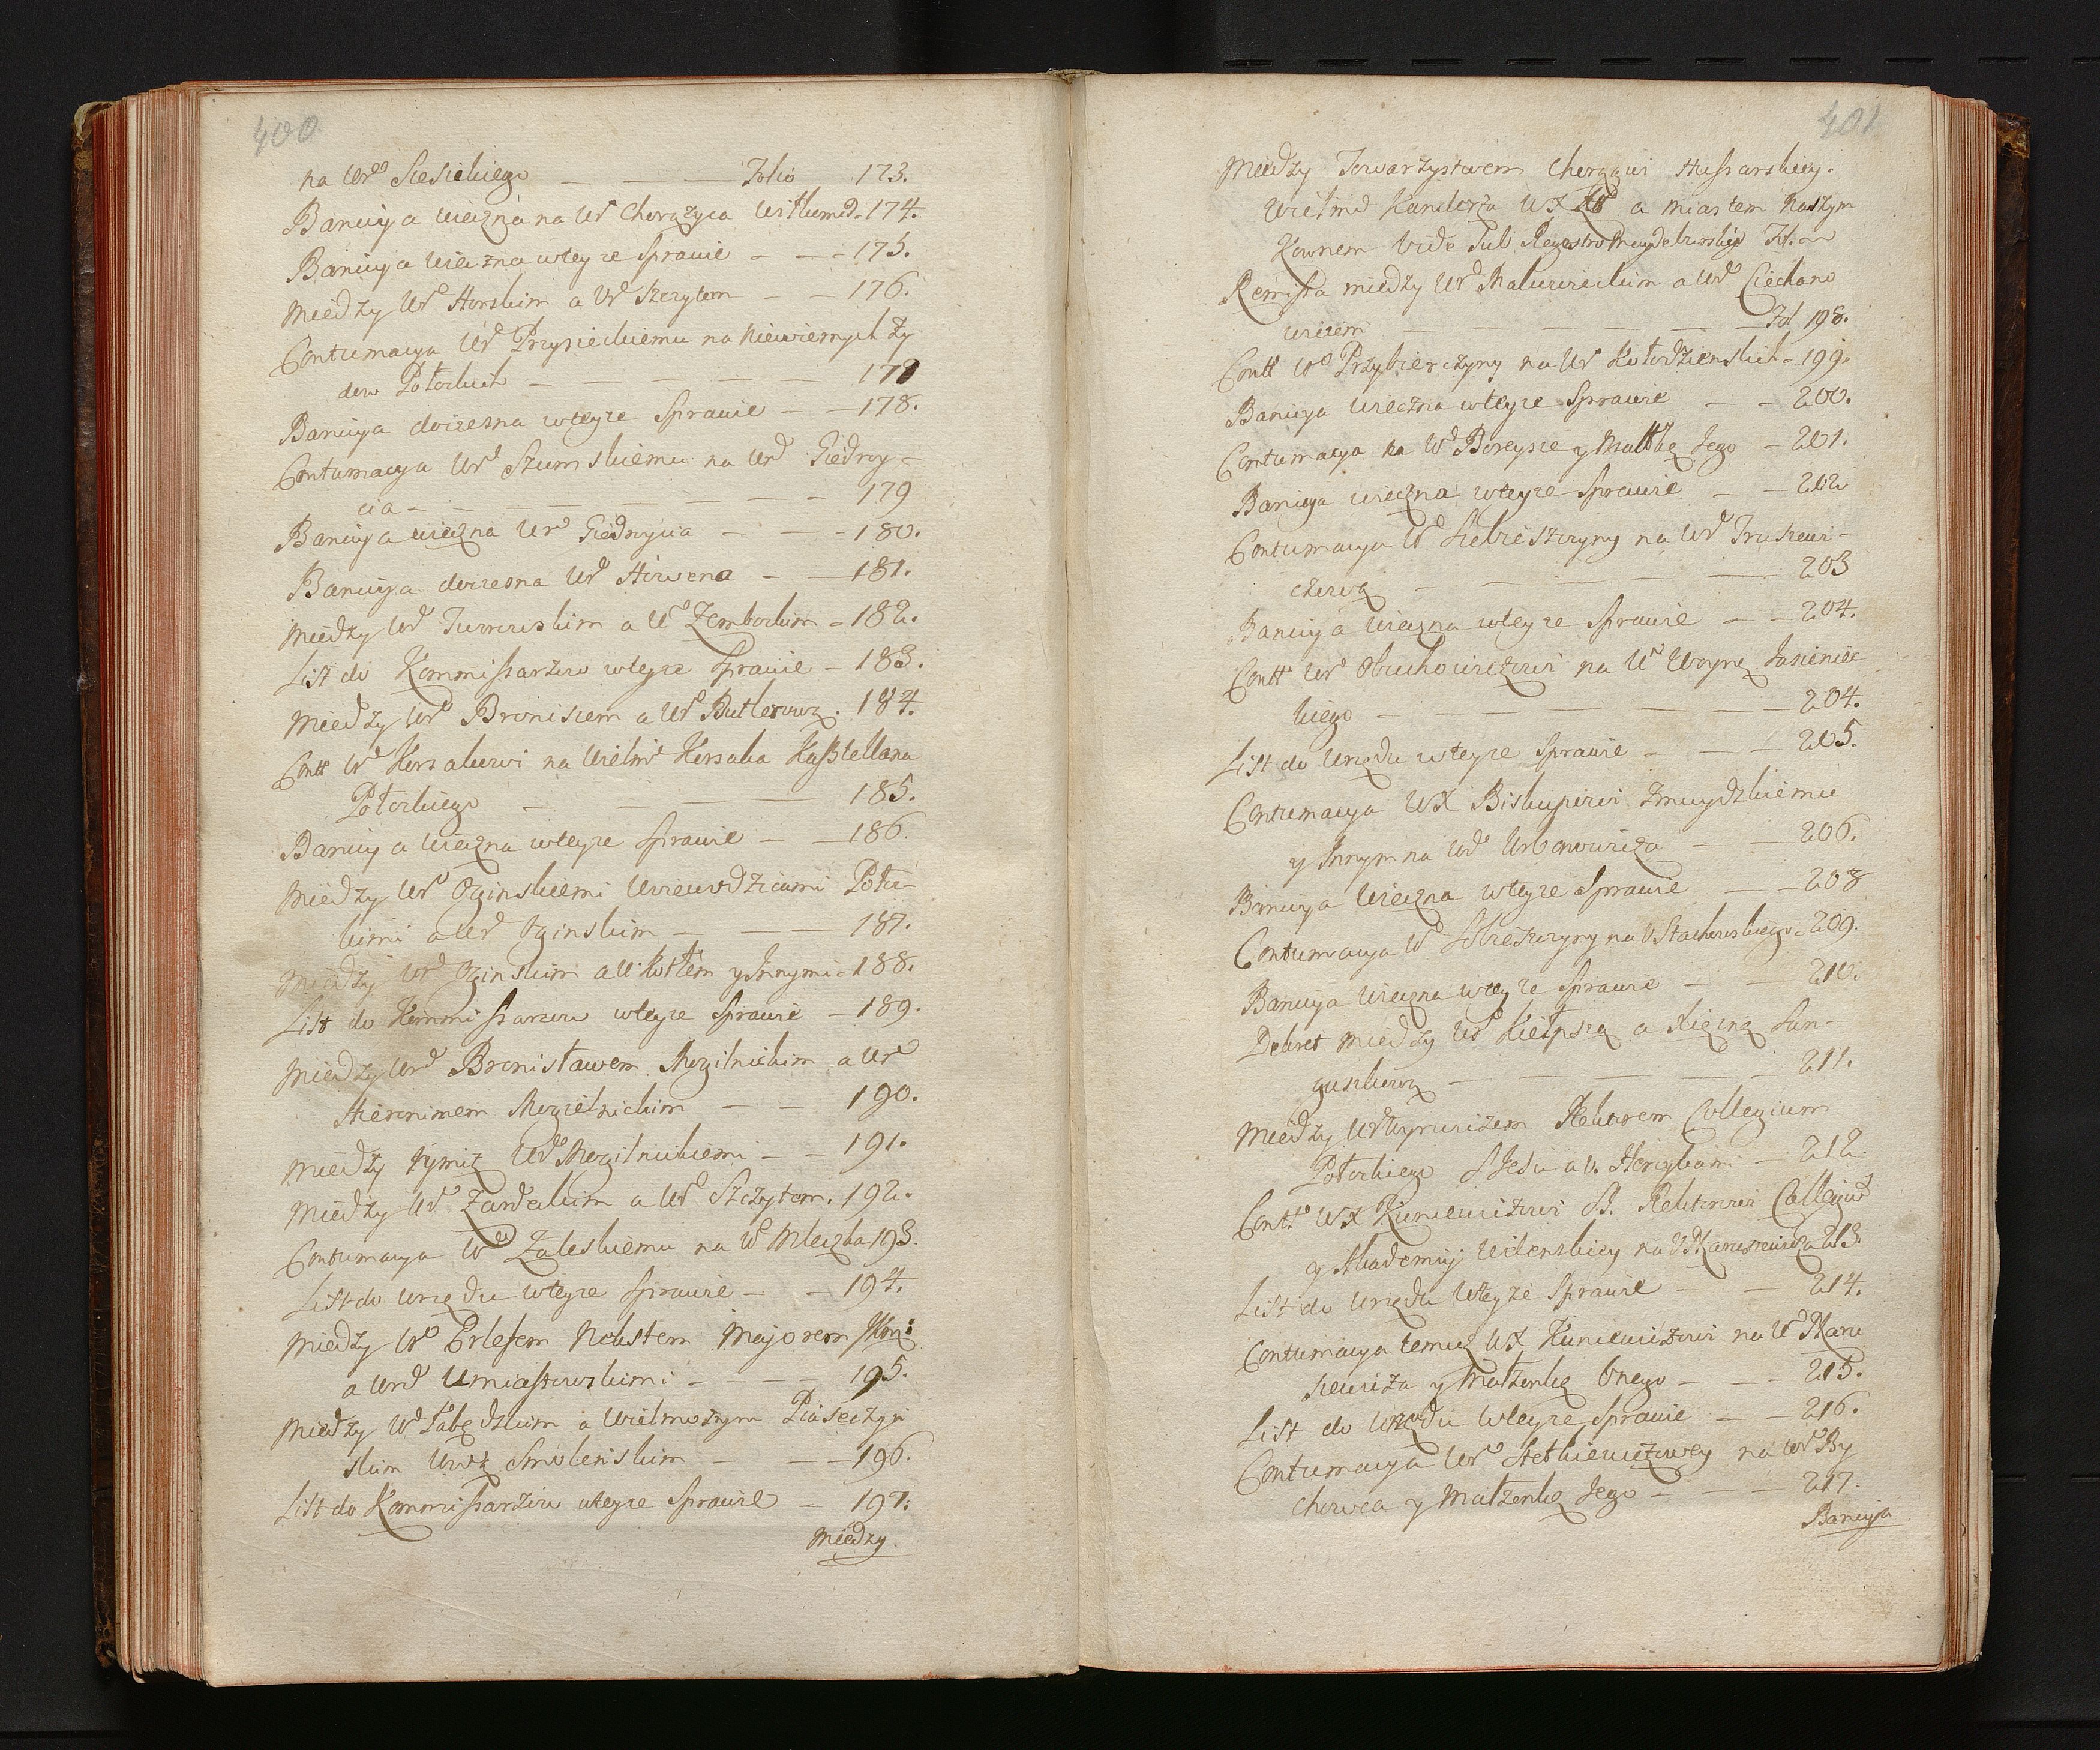 400
na Ur° Siesickiego — — Folio 173.
Banicya wieczna na Ur Chorążyca Wiłkomd. 174.
Banicya wieczna wteyze Sprawie - - - 175.
Między Urd Horskim a Urd Szczytem - - 176.
Contumacya Urd Przysieckiemu na Niewiernych Zy
dow Połockich — — — — 178
Banicya doczesna wteyze Sprawie - - 178.
Contumacya Urd Szumskiemu na Urd Giedroy-
cia - - - - - - - 179
Banicya wieczna Urd Giedroycia - - - 180.
Banicya doczesna Urd Howena - - 181.
Między Urd Turowskim a Ud Zembockim - 182.
List do Kommissarzow wteyze Sprawie - 183.
Między Urd Broniszem a Urd Butlerową. 184.
Contt Wd Korsakowi na Wielmd Korsaka Kasztellana
Połockiego — — — 185.
Banicya wieczna wteyze Sprawie - - 186.
Między Urd Oginskiemi Woiewodzicami Połoc-
kimi a Urd Oginskim - - - 187.
Między Urd Oginskim a U Kottem y Innymi - 188.
List do Kommissarzow wteyze Sprawie - 189.
Między Urd Bronisławem Mogilnickim a Urd
Hieronimem Mogielnickim - - 190.
Między tymiz Urd Mogilnickiemi - - 191.
Między Ud Zardeckim a Urd Szczytem. 192.
Contumacya Wu Zaleskiemu na Wd Mleczka 193.
List do Urzędu wteyze Sprawie - - 194.
Między Wd Erlesem Nolistem Majorem
a Urd Umiastowskimi - - - - 195.
Między Wd Łabędzkim a Wielmożnym Piaseczyń
skim Smolenskim - - - 196.
List do Kommissarzow wteyze Sprawie - 197.
Między
401
Między Towarzystwem Chorągwi Hussarskiey.
Wielmd Kanclerza WX a Miastem Naszym
Kownem Vide Sub Regestro Fol.
Remissa między Urd a Urd Ciechano
wiczem — — — — — Fol 198.
Contt Wd Przybierczyny na Ur Kołodzienskich - 199.
Banicya wieczna wteyze Sprawie - - 200.
Contumacya na Wd Boreysze y Małłżę Jego - 201.
Banicya wieczna wteyze Sprawie - - 202
Contumacya Wd na Urd Truszewi-
czową — — — — 203
Banicya wieczna wteyze Sprawie - - 204.
Contt Ur Obuchowiczowi na Ur Woynę Jasieniec
kiego — — — — 204.
List do Urzędu wteyze Sprawie - - - 205.
Contumacya WX Biskupowi Zmuydzkiemu
y Innym na Wd Urbanowicza - - 206.
Banicya wieczna wteyze Sprawie - - 208
Contumacya Wd na U. Stachowskiego - 209.
Banicya wieczna wteyze Sprawie - - 210.
Dekret między Wd Kiełpszą a Xiężną San-
guszkową — — — — 211.
Między Rektorem Collegium
Połockiego S Jesu a U. - 212.
Contt WX Kuncewiczowi S. Rektorowi Collegiud
y Akademij Wilenskiey na U. 213.
List do Urzędu wteyze Sprawie - - 214.
Contumacya temuz WX Kuncewiczowi na Wd Maru
szewicza y Małżonkę Onego - - - 215.
List do Urzędu wteyze Sprawie - - 216.
Contumacya Ur Stetkiewiczowey na Wd By
chowca y Małżonkę Jego - - - 217.
Banicya